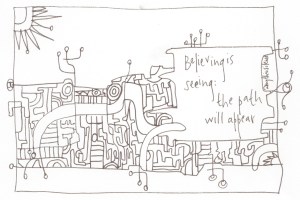 Believing is
seeing:
the path
will appear